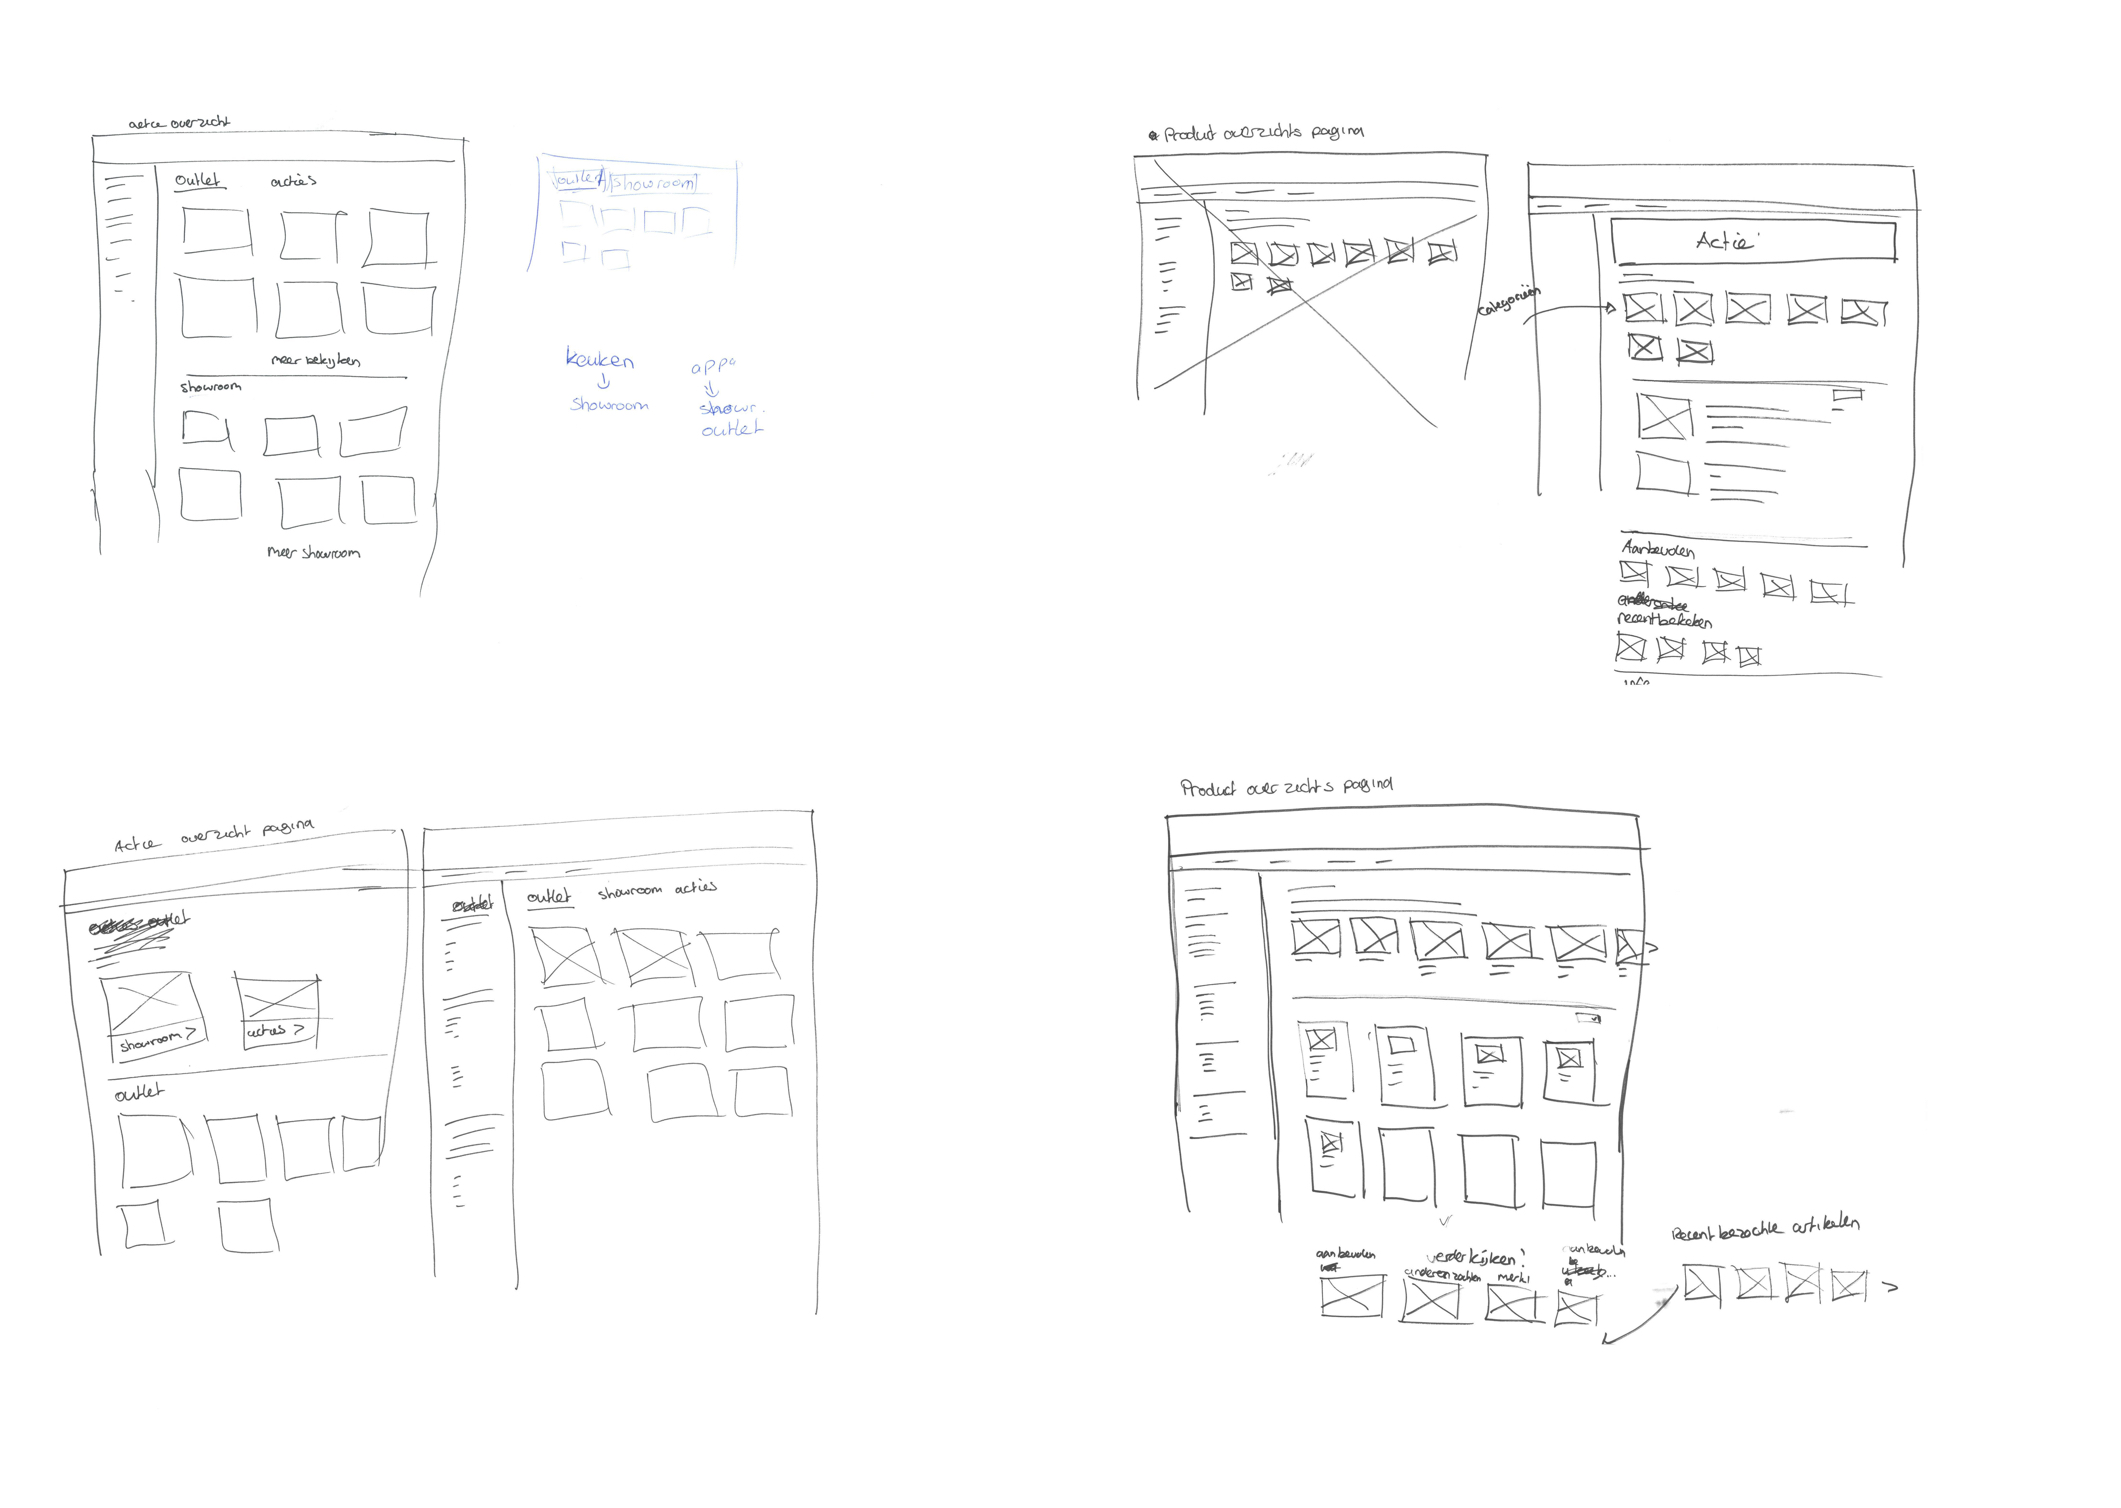 actie overzicht
outlet acties
meer bekijken
showroom
meer showroom
outlet showroom
keuken
showroom
appa
showr.
outlet
Product overzichts pagina
Actie
categorieën
Aanbevolen
recent bekeken
info
Actie overzicht pagina
outlet
showroom >
acties >
outlet
outlet
outlet showroom acties
Product overzichts pagina
verder kijken?
aanbevolen
anderen zochten
merk
aanbevolen
Recent bezochte artikelen